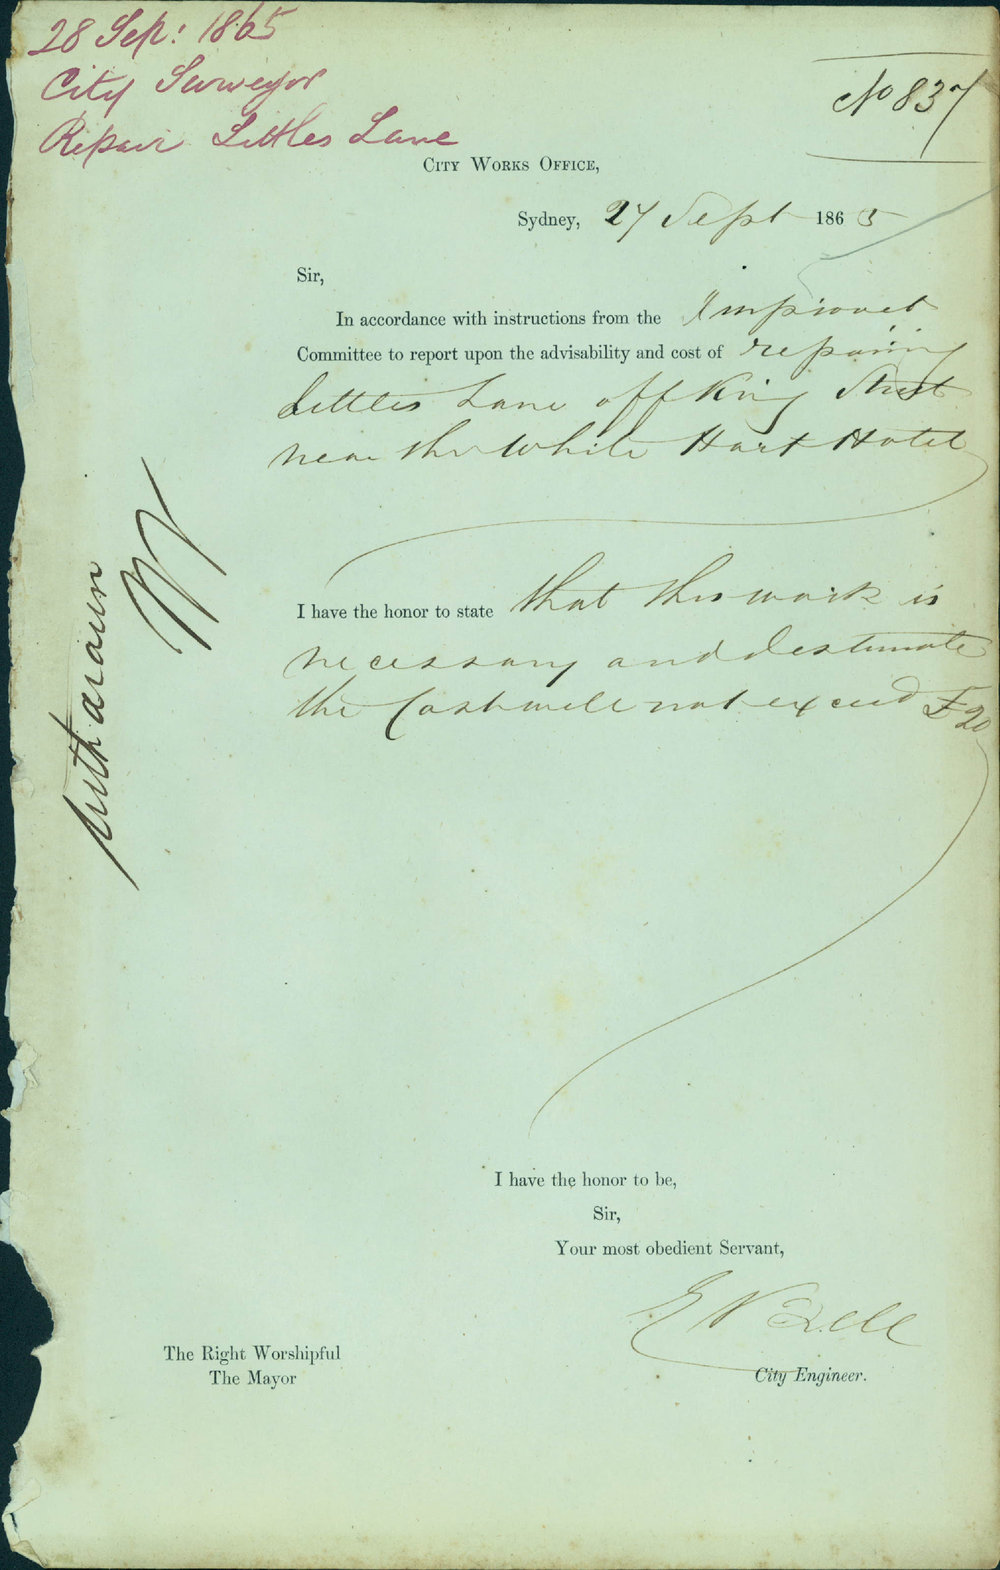 28 Sep: 1865
City Surveyor
Repair Littles Lane
No 837
City Works Office,
Sydney, 27 Sept 1865
Sir,
In accordance with instructions from the Improvet
Committee to report upon the advisability and cost of repairing
Littles Lane off King Street
near the White Hart Hotel
I have the honor to state that this work is
necessary and I estimate
the Cost will not exceed £20
withdrawn
I have the honor to be,
Sir,
Your most obedient Servant,
E Bell
City Engineer.
The Right Worshipful
The Mayor